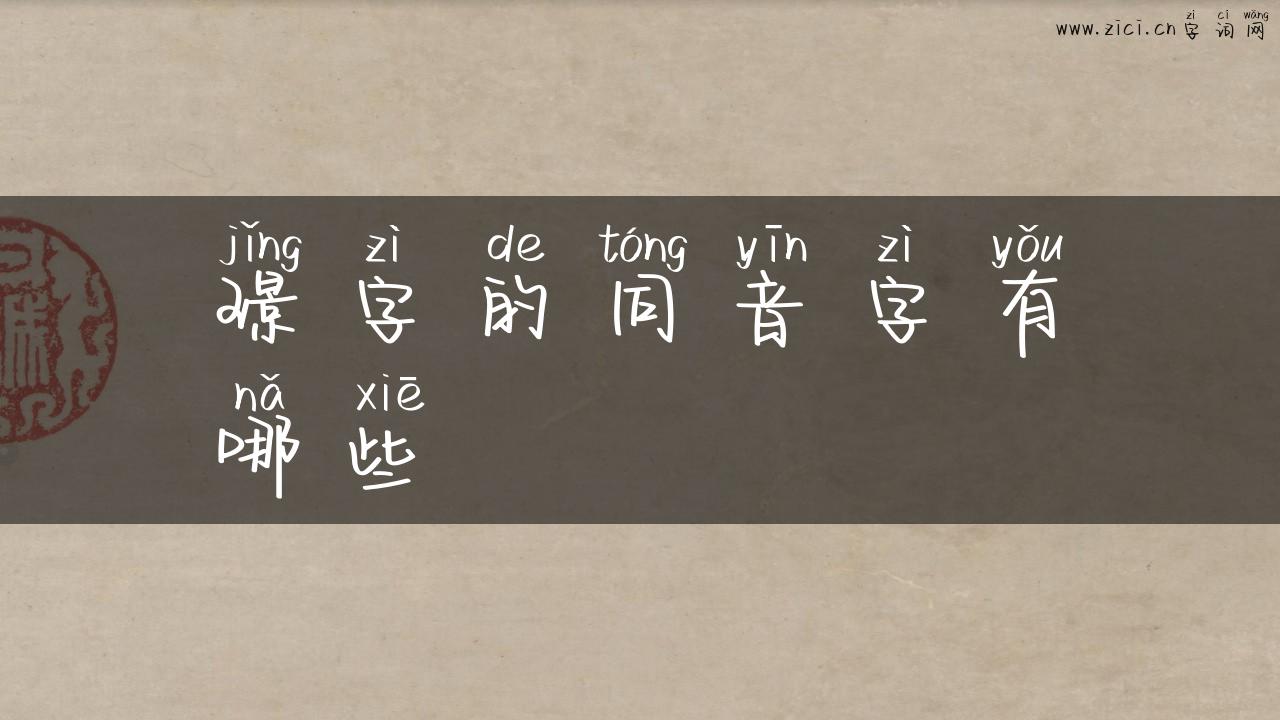 www.zici.cn字词网
zì cí wǎng
jǐng zì de tóng yīn zì yǒu
璟字的同音字有
nǎ xiē
哪些